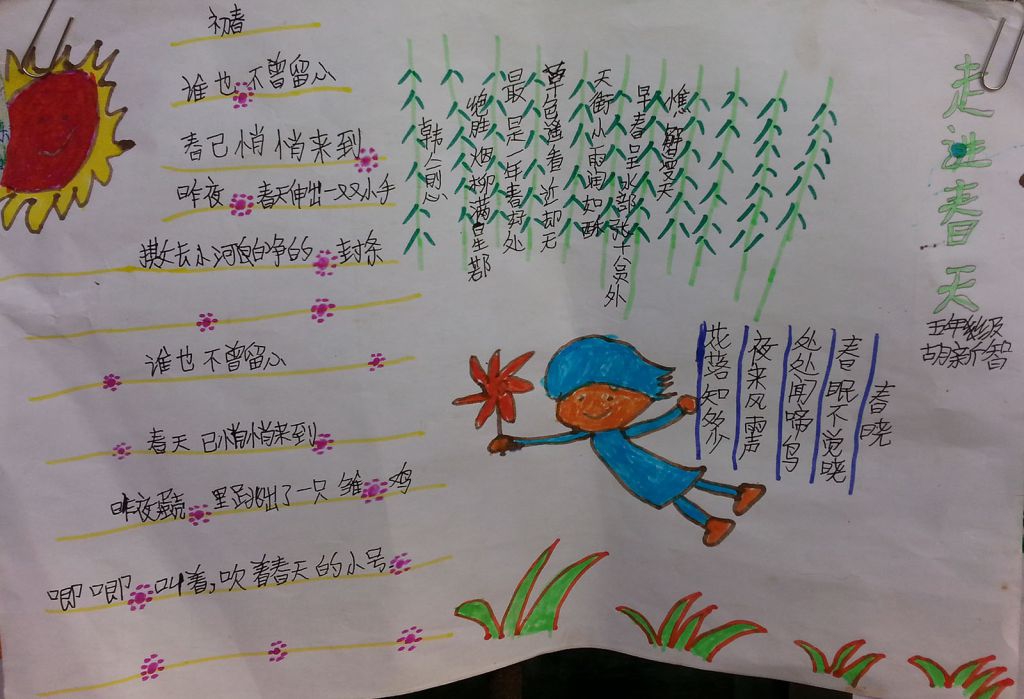 走进春天
五年级
胡新智
初春
谁也不曾留心
春已悄悄来到
昨夜春天伸出一双小手
去小河白净的封条
谁也不曾留心
春天已悄悄来到
昨夜里跑出了一只雏鸡
唧唧叫着,吹着春天的小号
解天
早春呈水部张十八员外
天衡小雨润如酥
草色遥看近却无
最是一年春好处
绝胜烟柳满皇都
韩愈
春晓
春眠不觉晓
处处闻啼鸟
夜来风雨声
花落知多少